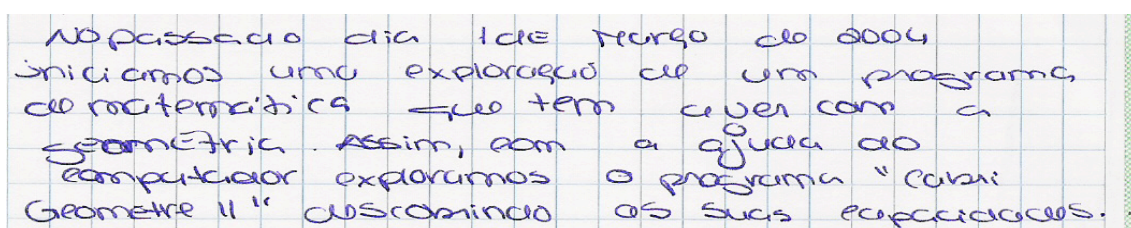 No passado dia 1 de Março de 2004
iniciamos uma exploração de um programa
de matemática que tem a ver com a
geometria. Assim, com a ajuda do
computador exploramos o programa "Cabri
Geometre II" descobrindo as suas capacidades.